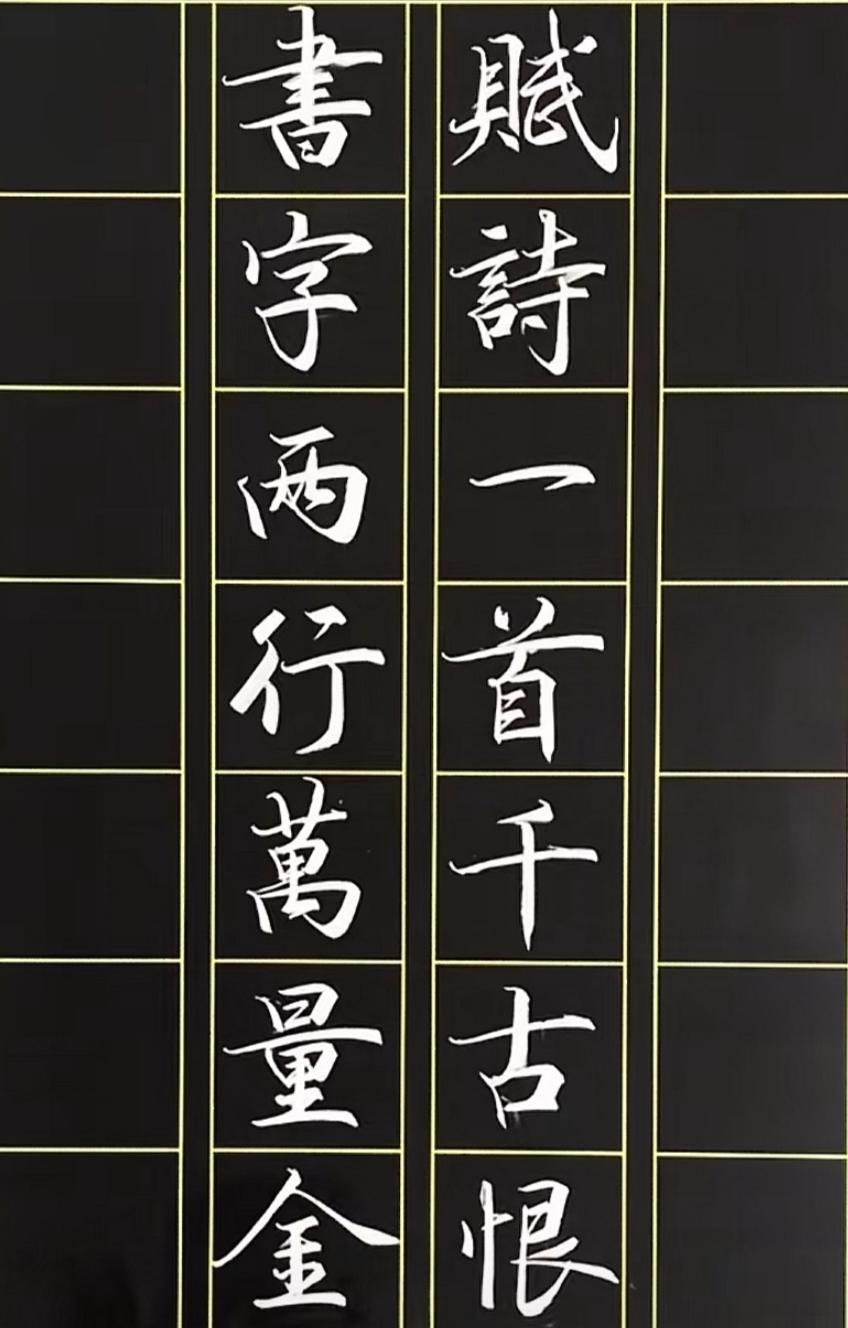 賦詩一首千古恨
書字两行萬量金